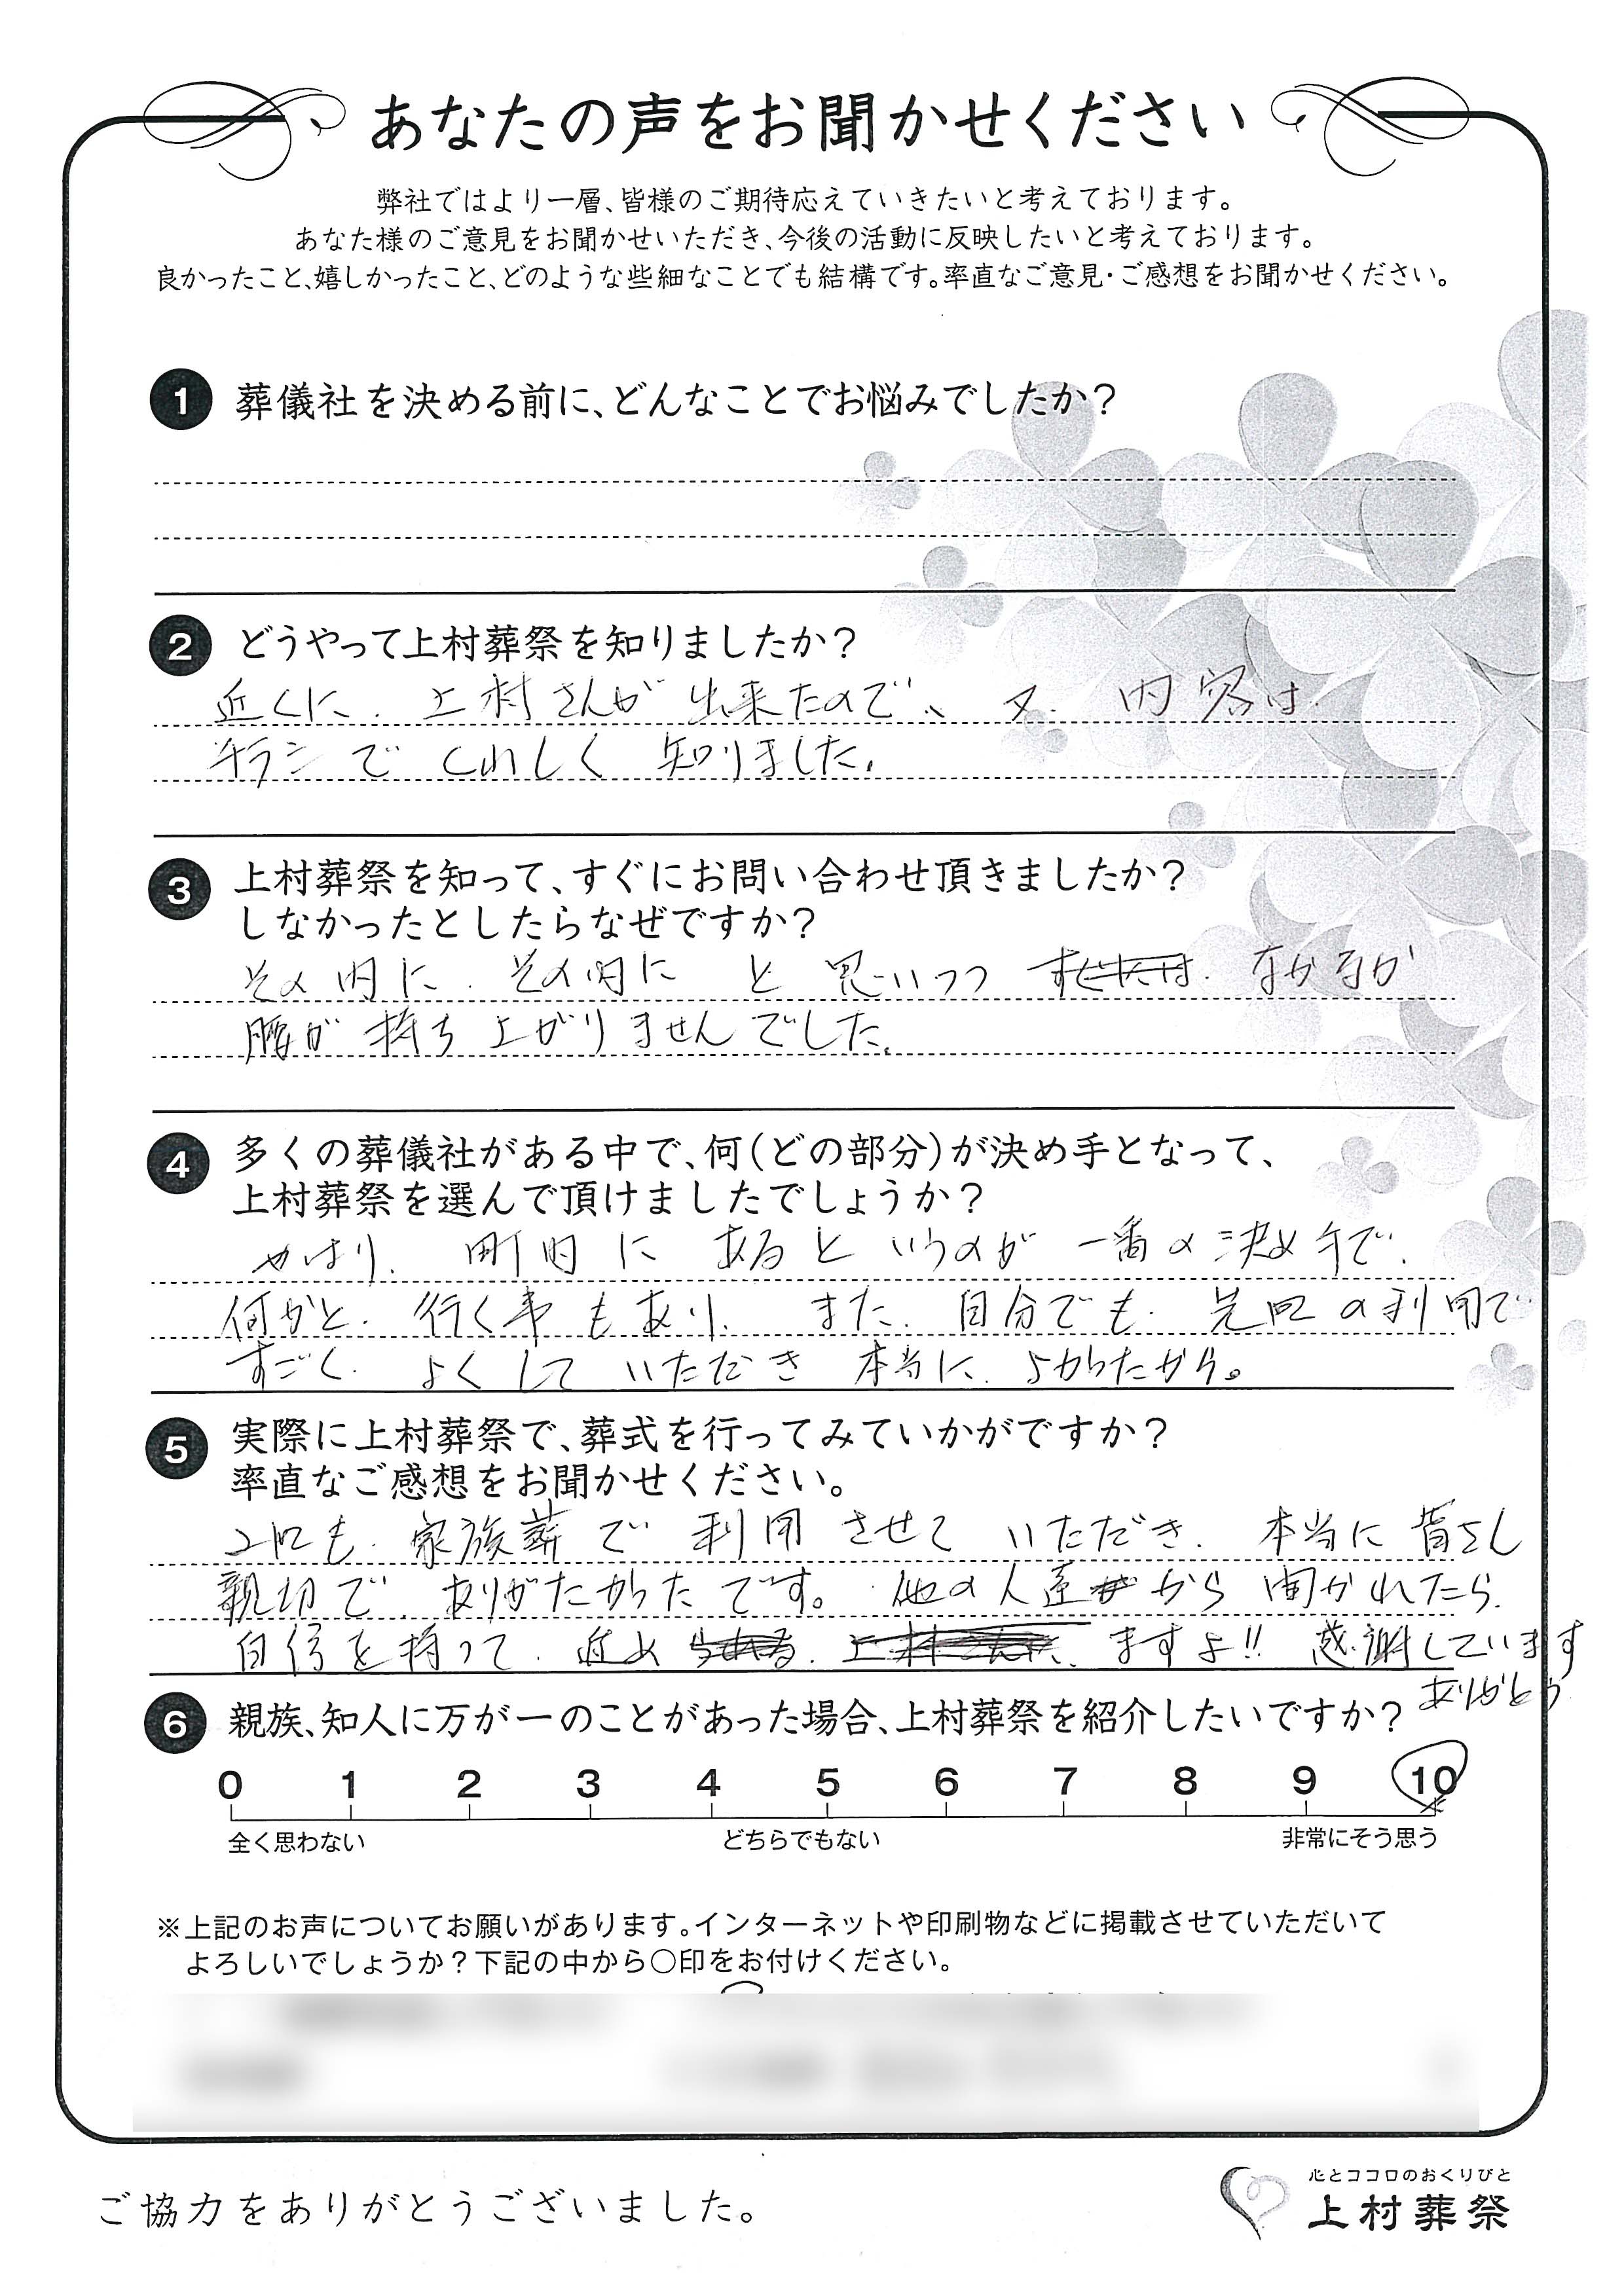 あなたの声をお聞かせください
弊社ではより一層、皆様のご期待応えていきたいと考えております。
あなた様のご意見をお聞かせいただき、今後の活動に反映したいと考えております。
良かったこと、嬉しかったこと、どのような些細なことでも結構です。率直なご意見・ご感想をお聞かせください。
1 葬儀社を決める前に、どんなことでお悩みでしたか？
2 どうやって上村葬祭を知りましたか？
近くに、上村さんが出来たので、又、内容は
チラシでくわしく知りました。
3 上村葬祭を知って、すぐにお問い合わせ頂きましたか？
しなかったとしたらなぜですか？
その内に、その内にと思いつつ なかなか
腰が持ち上がりませんでした。
4 多くの葬儀社がある中で、何（どの部分）が決め手となって、
上村葬祭を選んで頂けましたでしょうか？
やはり、町内にあるというのが一番の決め手で、
何かと、行く事もあり、また、自分でも、先回の利用で
すごく、よくしていただき本当に、よかったから。
5 実際に上村葬祭で、葬式を行ってみていかがですか？
率直なご感想をお聞かせください。
2回も、家族葬で利用させていただき、本当に皆さん
親切で、ありがたかったです。他の人達から聞かれたら、
自信を持って、進め ますよ!! 感謝しています
ありがとう
6 親族、知人に万が一のことがあった場合、上村葬祭を紹介したいですか？
0 1 2 3 4 5 6 7 8 9 10
全く思わない どちらでもない 非常にそう思う
※上記のお声についてお願いがあります。インターネットや印刷物などに掲載させていただいて
よろしいでしょうか？下記の中から○印をお付けください。
ご協力をありがとうございました。
心とココロのおくりびと
上村葬祭